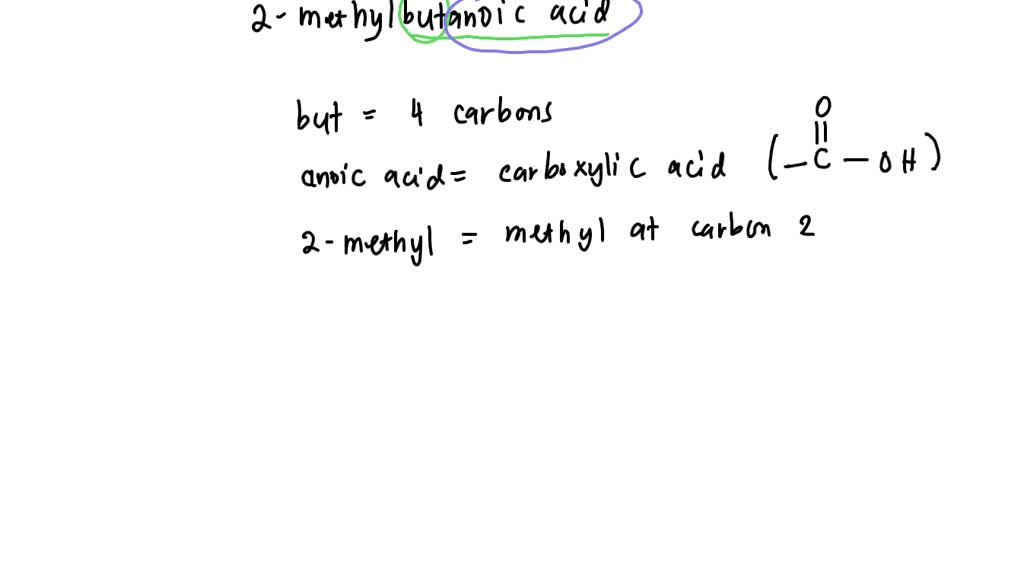 2-methylbutanoic acid
but = 4 carbons
O
anoic acid = carboxylic acid (-C-OH)
2-methyl = methyl at carbon 2